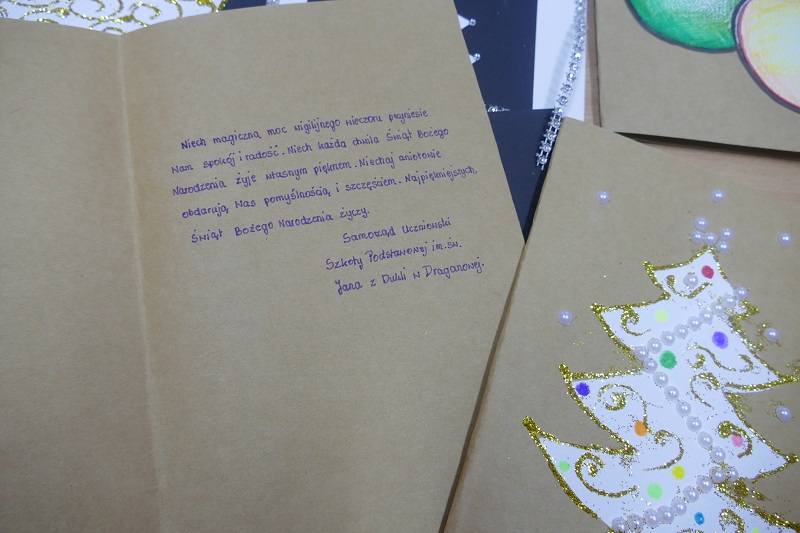 Niech magiczna moc wigilijnego wieczoru przyniesie
Wam spokój i radość. Niech każda chwila Świąt Bożego
Narodzenia żyje własnym pięknem. Niechaj aniołowie
obdarują Was pomyślnością i szczęściem. Najpiękniejszych,
Świąt Bożego Narodzenia życzy.
Samorząd Uczniowski
Szkoły Podstawowej im. św.
Jana z Dukli w Draganowej.